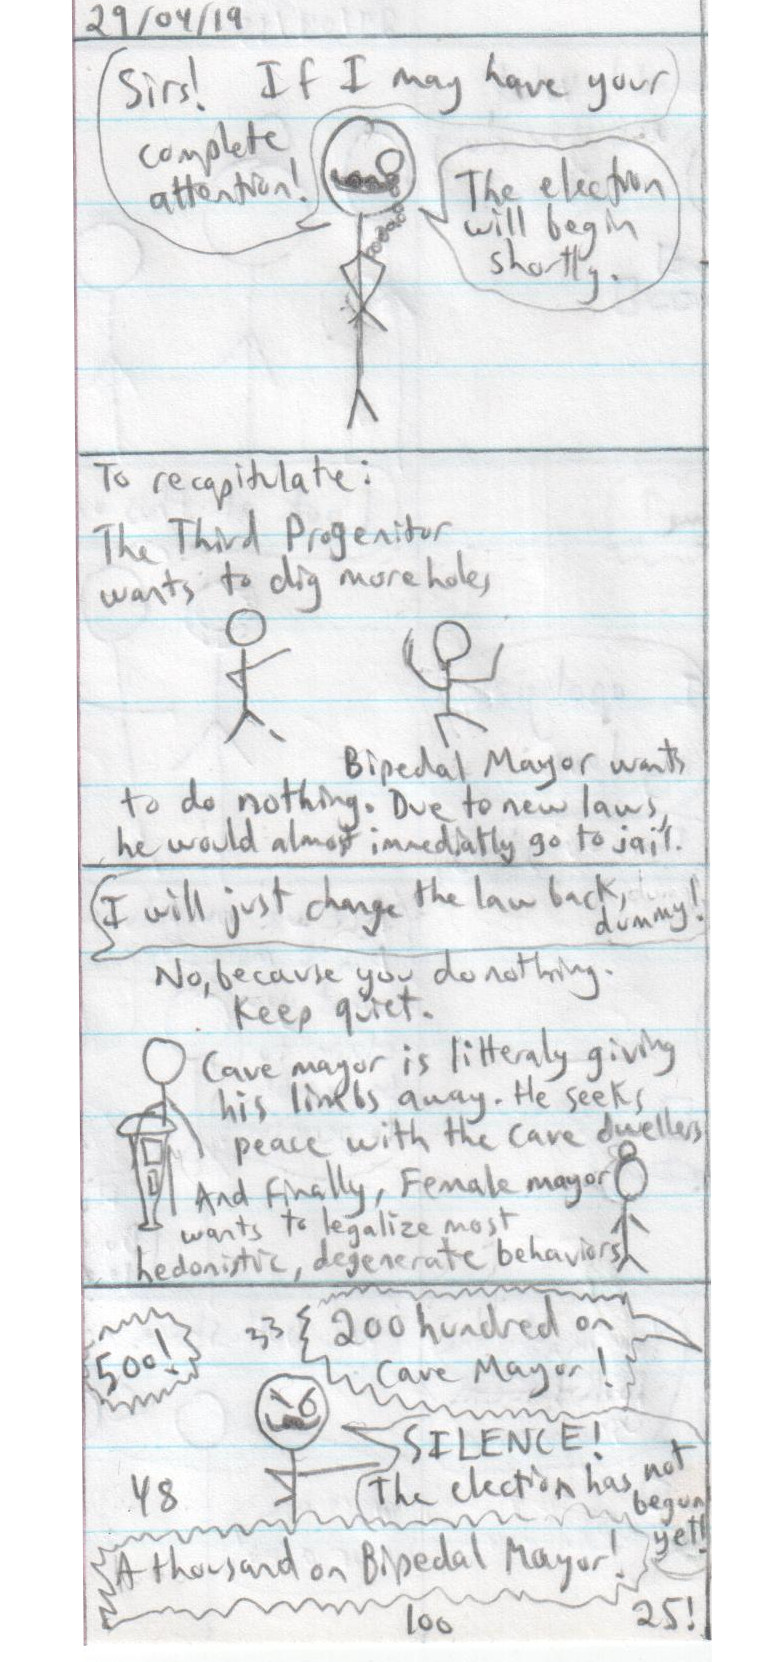 29/04/19
Sirs! If I may have your
complete
attention!
The election
will begin
shortly.
To recapitulate:
The Third Progenitor
wants to dig more holes
Bipedal Mayor wants
to do nothing. Due to new laws,
he would almost immediatly go to jail.
I will just change the law back,
dummy!
No, because you do nothing.
Keep quiet.
Cave mayor is litteraly giving
his limbs away. He seeks
peace with the cave dwellers
And finally, Female mayor
wants to legalize most
hedonistic, degenerate behaviors
500!
33
200 hundred on
Cave Mayor!
SILENCE!
The election has not
begun
yet!
48
A thousand on Bipedal Mayor!
100
25!